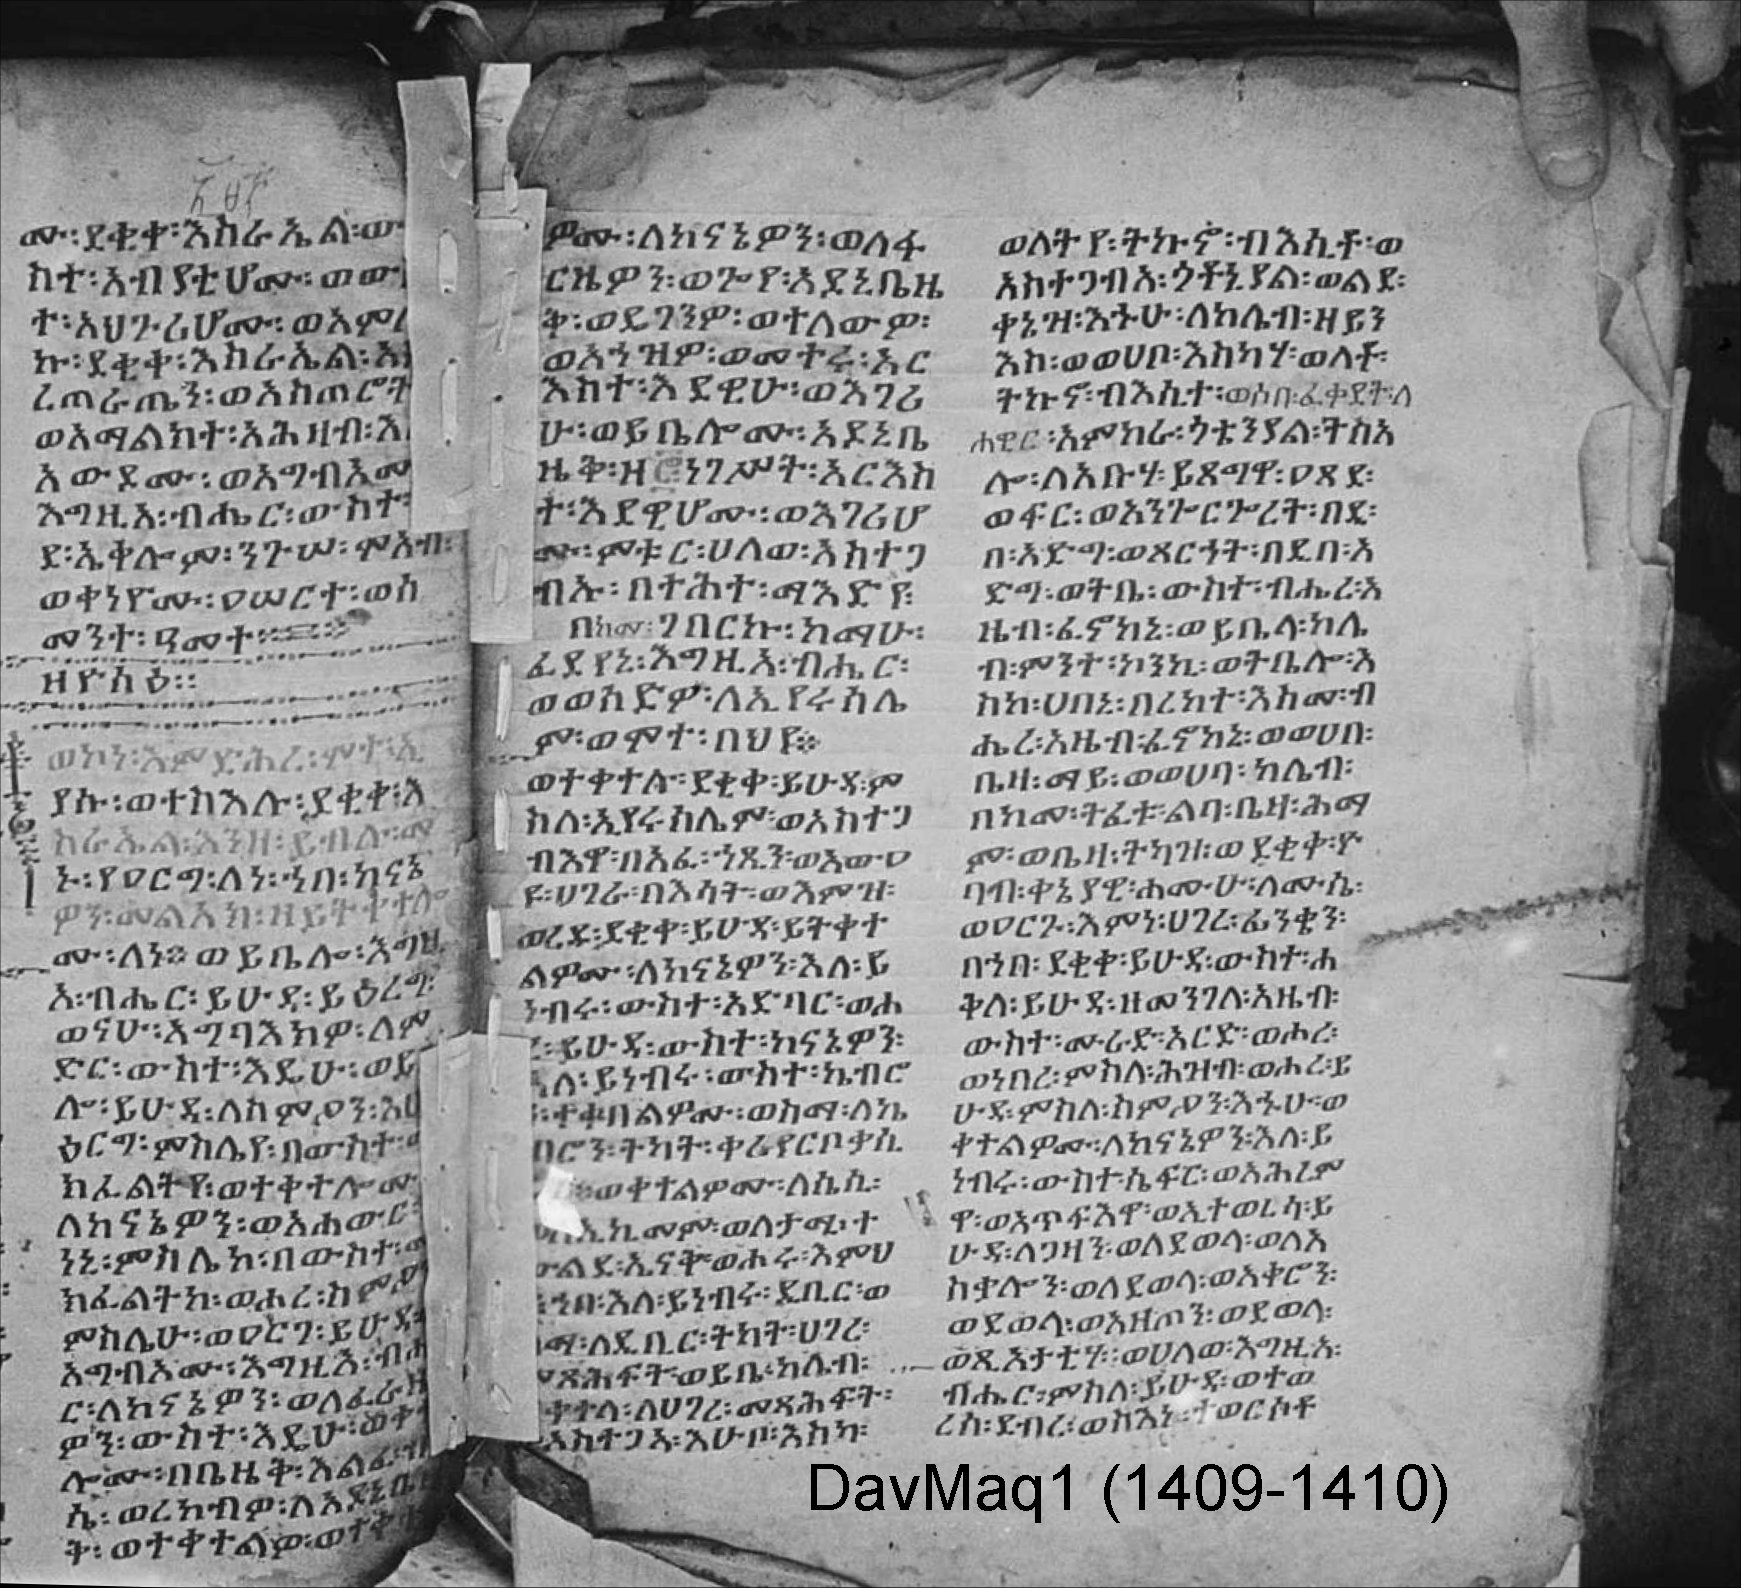 ሙ፡ደቂቀ፡እስራኤል፡
ስተ፡አብያቲሆሙ፡
ተ፡አህጉሪሆሙ፡
ኩ፡ደቂቀ፡እስራኤል፡
ወአማልክተ፡አሕዛብ፡
እግዚአ፡ብሔር፡ውስተ፡
ወቀነዮሙ፡ዐሠርተ፡ወስ
መንተ፡ዓመተ።
ዘዮስዕ።
ወኮነ፡እምድሕረ፡ሞተ፡ኢ
ያሱ፡ወተስእሉ፡ደቂቀ፡እ
ስራኤል፡እንዘ፡ይብሉ፡መ
ኑ፡የዐርግ፡ለነ፡ኀበ፡ከናኔ
ዎን፡መልአክ፡ዘይትቀተሎ
ሙ፡ለነ። ወይቤሎ፡እግዚ
አ፡ብሔር፡ይሁዳ፡ይዕረግ፡
ወናሁ፡አግባእክዎ፡ለም
ድር፡ውስተ፡እዴሁ፡ወይ
ሎ፡ይሁዳ፡ለስምዖን፡
ዕርግ፡ምስሌየ፡በውስተ፡
ክፈልትየ፡ወተቀተሎሙ
ለከናኔዎን፡ወአሐውር፡
ነኒ፡ምስሌከ፡በውስተ፡
ክፈልትከ፡ወሐረ፡ስምዖ
ምስሌሁ፡ወዐርገ፡ይሁዳ፡
አግብአሙ፡እግዚአ፡
ር፡ለከናኔዎን፡ወለፈራ
ዎን፡ውስተ፡እዴሁ፡ወቀ
ሎሙ፡በቤዜቅ፡እልፈ፡
ሴ፡ወረከብዎ፡ለአዶኒቤ
ቅ፡ወተቀተልዎ፡ወተቀ
ዎሙ፡ለከናኔዎን፡ወለፋ
ርዜዎን፡ወጐየ፡አዶኒቤዜ
ቅ፡ወዴገንዎ፡ወተለውዎ፡
ወአኀዝዎ፡ወመተሩ፡አር
እስተ፡እደዊሁ፡ወእገሪ
ሁ፡ወይቤሎሙ፡አዶኒቤ
ዜቅ፡ዘ፸ነገሥት፡አርእስ
ተ፡እደዊሆሙ፡ወእገሪሆ
ሙ፡ምቱር፡ሀለወ፡አስተጋ
ብኡ፡በተሕተ፡ማእድየ፡
በከመ፡ገበርኩ፡ከማሁ፡
ፈደየኒ፡እግዚአ፡ብሔር፡
ወወሰድዎ፡ለኢየሩሳሌ
ም፡ወሞተ፡በህየ።
ወተቀተሉ፡ደቂቀ፡ይሁዳ፡ም
ስለ፡ኢየሩሳሌም፡ወአስተጋ
ብእዋ፡በአፈ፡ኀጺን፡ወአውዐ
ዩ፡ሀገራ፡በእሳት፡ወእምዝ፡
ወረዱ፡ደቂቀ፡ይሁዳ፡ይትቀተ
ልዎሙ፡ለከናኔዎን፡እለ፡ይ
ነብሩ፡ውስተ፡አድባር፡ወሐ
ይሁዳ፡ውስተ፡ከናኔዎን፡
እለ፡ይነብሩ፡ውስተ፡ኬብሮ
ተቀበልዎሙ፡ወስማ፡ለኬ
ብሮን፡ትካት፡ቀሪየርቦቃሲ
ወቀተልዎሙ፡ለሴሲ፡
አኪመም፡ወለታሚ፡ተ
ውልደ፡ኢናቅ፡ወሐሩ፡እምህ
ኀበ፡እለ፡ይነብሩ፡ዴቢር፡ወ
ስማ፡ለዴቢር፡ትካት፡ሀገረ፡
መጻሕፍት፡ወይቤ፡ካሌብ፡
ቀተላ፡ለሀገረ፡መጻሕፍት፡
አስተጋኣ፡እሁቦ፡እስካ፡
ወለትየ፡ትኩኖ፡ብእሲቶ፡ወ
አስተጋብአ፡ጎቶኒያል፡ወልደ፡
ቀኔዝ፡እኁሁ፡ለካሌብ፡ዘይን
እስ፡ወወሀቦ፡እስካሃ፡ወለቶ፡
ትኩኖ፡ብእሲተ፡ወሶበ፡ፈቀደት፡ለ
ሐዊር፡አምከራ፡ጎቴንያል፡ትስአ
ሎ፡ለአቡሃ፡ይጸግዋ፡ዐጸደ፡
ወፍር፡ወአንጐርጐረት፡በዲ፡
በ፡አድግ፡ወጸርኀት፡በዲበ፡አ
ድግ፡ወትቤ፡ውስተ፡ብሔረ፡አ
ዜብ፡ፈኖከኒ፡ወይቤላ፡ካሌ
ብ፡ምንተ፡ኮንኪ፡ወትቤሎ፡እ
ስከ፡ሀበኒ፡በረከተ፡እስመ፡ብ
ሔረ፡አዜብ፡ፈኖከኒ፡ወወሀበ፡
ቤዛ፡ማይ፡ወወሀባ፡ካሌብ፡
በከመ፡ትፈቱ፡ልባ፡ቤዛ፡ሕማ
ም፡ወቤዛ፡ትካዝ፡ወደቂቅ፡ዮ
ባብ፡ቀኔያዊ፡ሐሙሁ፡ለሙሴ፡
ወዐርጉ፡እምነ፡ሀገረ፡ፊንቄን፡
በኀበ፡ደቂቀ፡ይሁዳ፡ውስተ፡ሐ
ቅለ፡ይሁዳ፡ዘመንገለ፡አዜብ፡
ውስተ፡ሙራድ፡አርድ፡ወሐረ፡
ወነበረ፡ምስለ፡ሕዝብ፡ወሐረ፡ይ
ሁዳ፡ምስለ፡ስምዖን፡እኁሁ፡ወ
ቀተልዎሙ፡ለከናኔዎን፡እለ፡ይ
ነብሩ፡ውስተ፡ሴፍር፡ወአሕረም
ዋ፡ወአጥፍእዋ፡ወኢተወረሳ፡ይ
ሁዳ፡ለጋዛን፡ወለደወላ፡ወለአ
ስቃሎን፡ወለደወላ፡ወአቀሮን፡
ወደወላ፡ወአዘጦን፡ወደወላ፡
ወጺአታቲሃ፡ወሀለወ፡እግዚአ፡
ብሔር፡ምስለ፡ይሁዳ፡ወተወ
ረሰ፡ደብረ፡ወስእነ፡ተወርሶቶ
DavMaq1 (1409-1410)